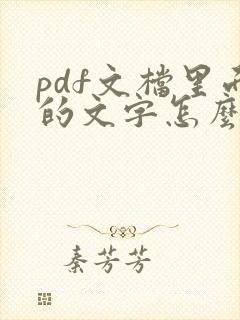 pdf文檔里
的文字怎麼
秦芳芳